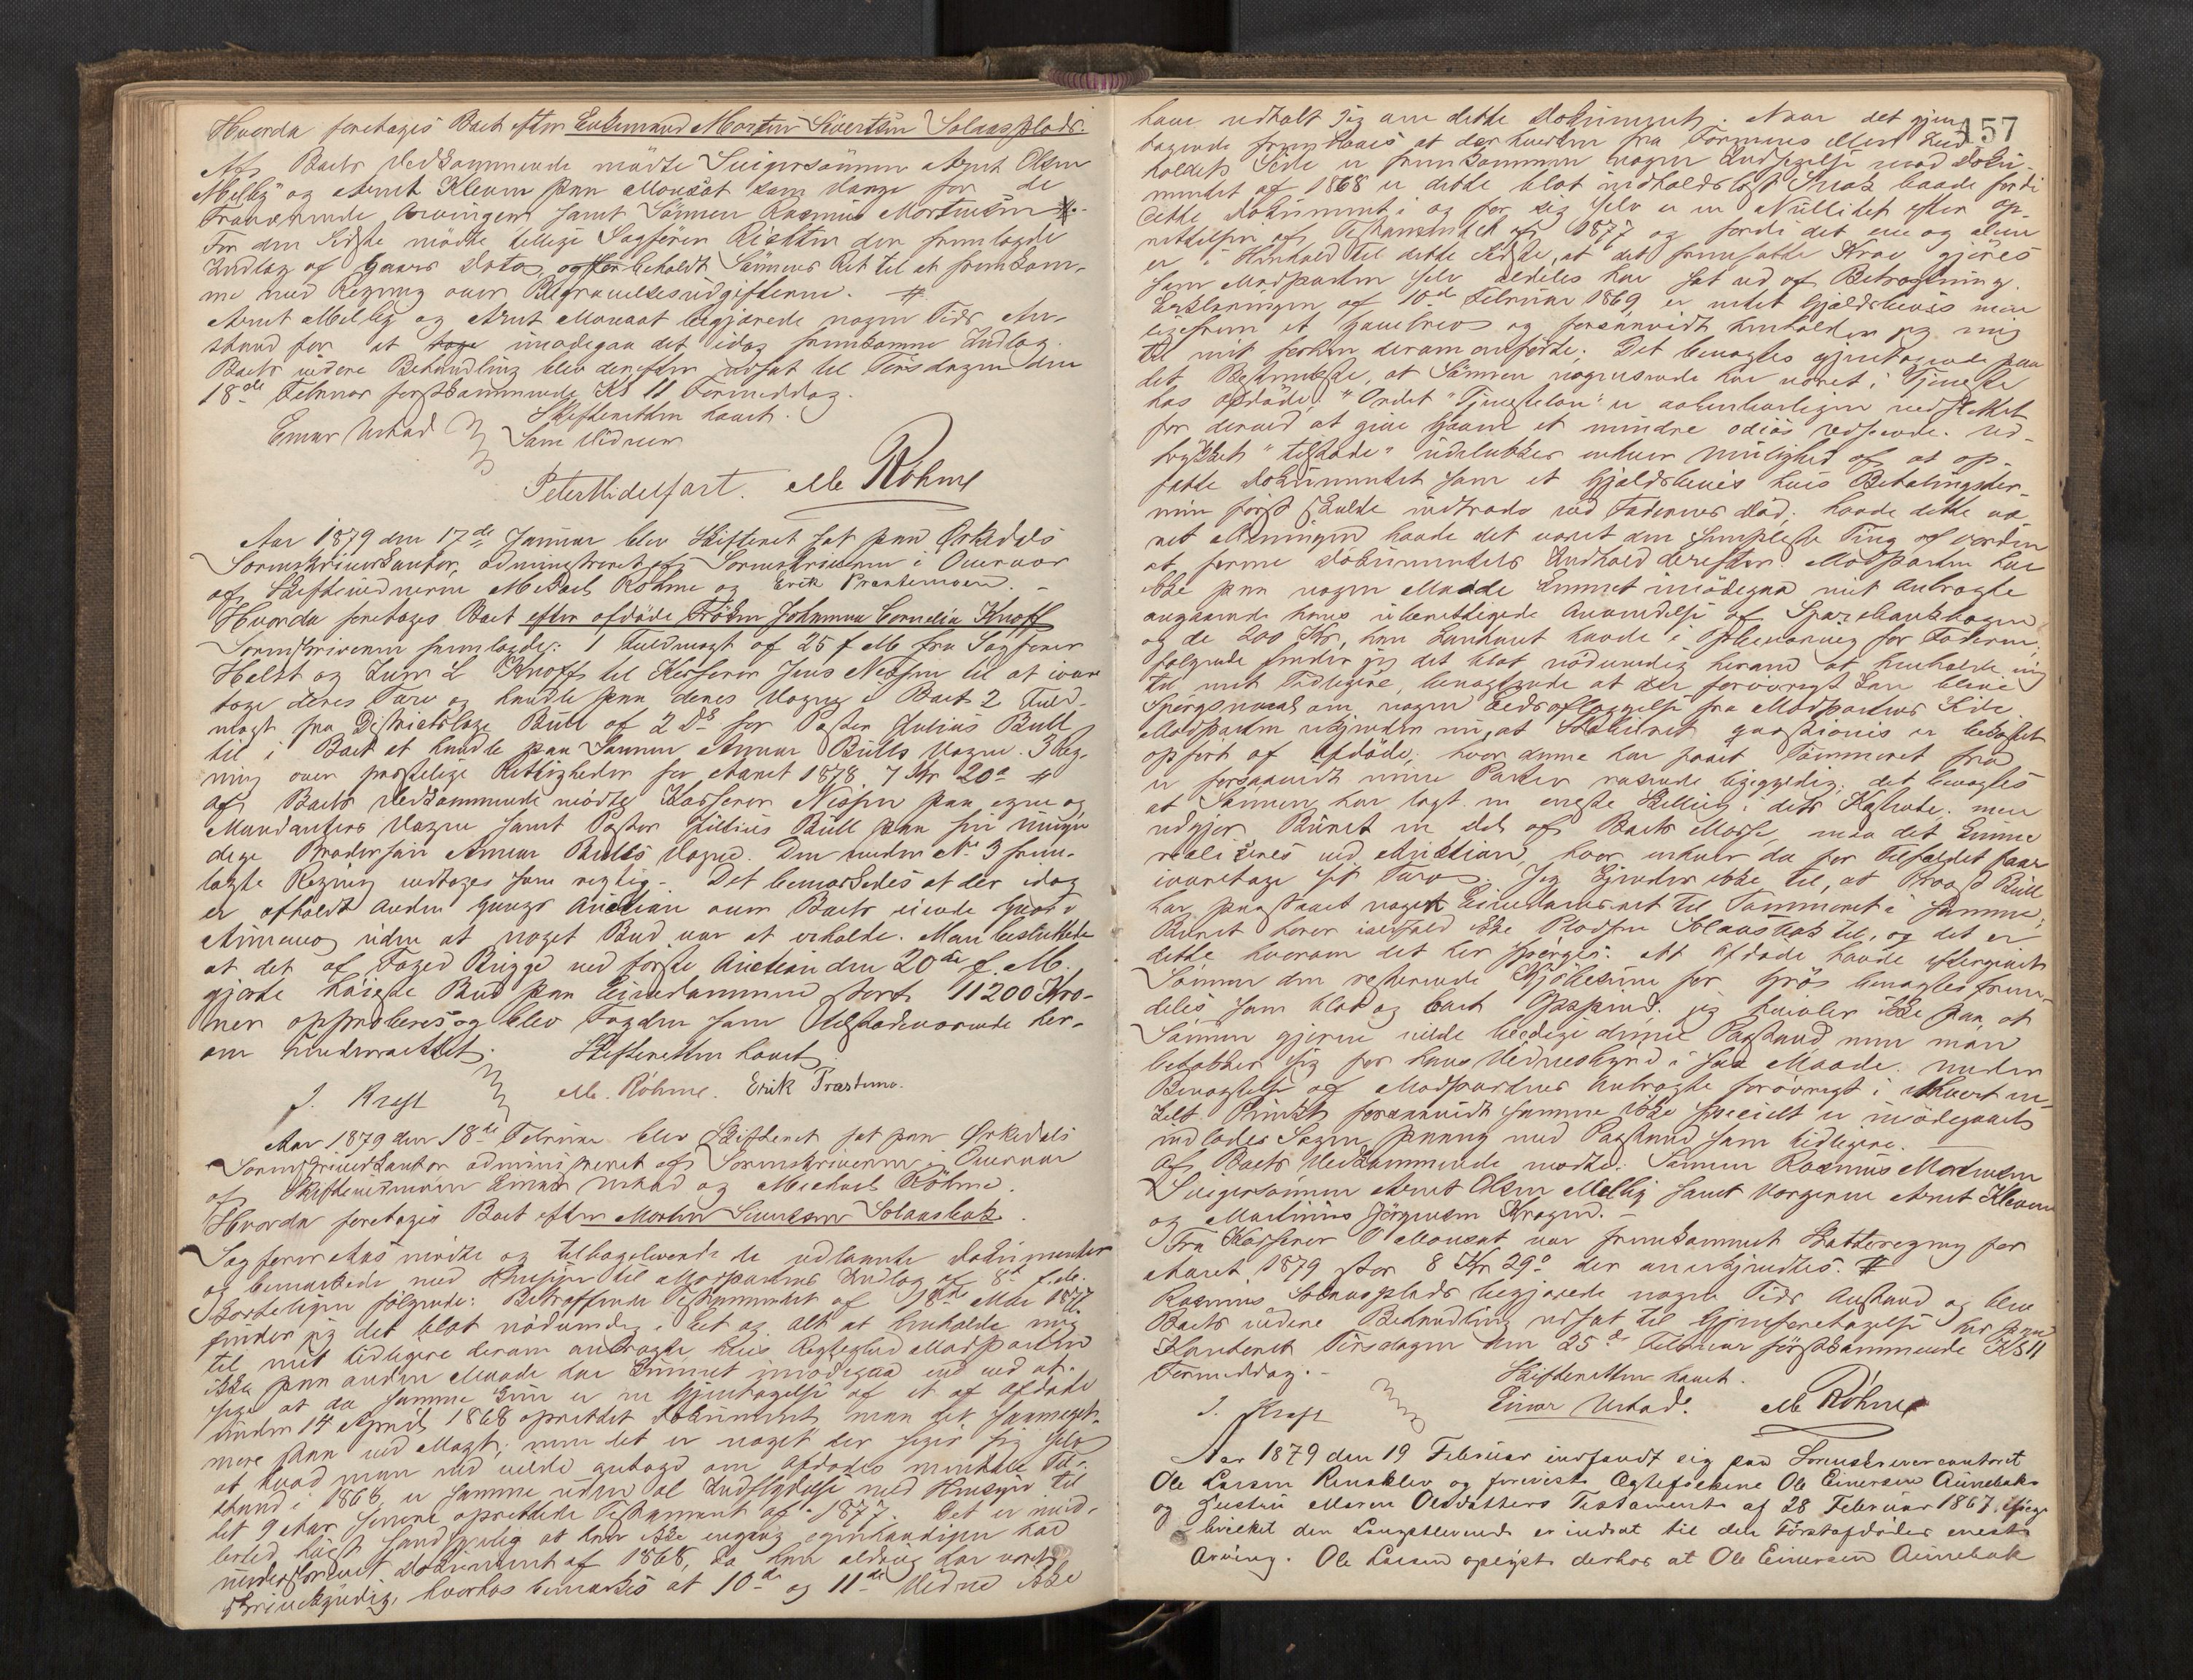 Hvorda foretoges Boet efter Enkemand Morten Sivertsen Solaasplads.
Af Boets Vedkommende mødte Svigersønnen Arnt Olsen
Melby og Arnt Kleven paa Mousöt som Værge for de
fraværende Arvinger samt Sønnen Rasmus Mortensen #.
For den Sidste mødte tillige Sagfører Richter der fremlagde
Indlæg af Gaars Dato, og forbeholdt Sønnens Ret til at fremkom-
me med Regning over Begravelsesudgifterne. #
Arnt Melby og Arnt Mousöt begjærede nogen Tids An-
stand for at imødegaa det idag fremkomne Indlæg.
Boets videre Behandling blev derefter udsat til Tirsdagen den
18de Februar førstkommende Kl 11 Formiddag.
Skifteretten hævet.
Einar Urstad Som Vidner
Peter Midelfart. M Röhme
Aar 1879 den 17de Januar blev Skifteret sat paa Orkedals
Sorenskriverkontor, administreret af Sorenskriveren i Overvær
af Skiftevidnerne Michael Röhme og Erik Præstemoen.
Hvorda foretoges Boet efter afdøde Frøken Johanna Cornelia Knoff
Sorenskriveren fremlagde: 1 Fuldmagt af 25 f M fra Sagfører
Heldt og Ingr L Knoff til Kasserer Jens Nissen til at ivare-
tage deres Tarv og handle paa deres Vegne i Boet 2 Fuld-
magt fra Distriktslæge Bull af 2 Ds for Pastor Julius Bull
til i Boet at handle paa Sønnen Annar Bulls Vegne. 3 Reg-
ning over prostelige Rettigheder for Aaret 1878, 7 Kr 20 ø #
Af Boets Vedkommende mødte Kasserer Nissen paa egne og
Mandanters Vegne samt Pastor Julius Bull paa sin umyn-
dige Brodersøn Annar Bulls Vegne. Den under No 3 frem-
lagte Regning vedtoges som rigtig. Det bemærkedes at der idag
er afholdt anden Gangs Auction over Boets eiende Gaard
Aunemo uden at noget Bud var at erholde. Man besluttede
at det af Foged Brigge ved første Auction den 20de f. M.
gjorte høieste Bud paa Eiendommen stort 11200 Kro-
ner approberes, og blev Fogden som tilstedeværende her-
om underrettet. Skifteretten hævet.
J. Kraft M. Röhme. Erik Præstmo.
Aar 1879 den 18de Februar blev Skifteret sat paa Orkedals
Sorenskriverkontor administreret af Sorenskriveren i Overvær
af Skiftevidnerne Einar Urstad og Michael Röhme.
Hvorda foretoges Boet efter Morten Sivertsen Solaasbak.
Sagfører Aas mødte og tilbageleverede de udlaante Dokumenter
og bemærkede med Hensyn til Modpartens Indlæg af 8de f. M.
Korteligen følgende: Betræffende Testamentet af 18de Mai 1877
finder jeg det blot nødvendig i Et og Alt at henholde mig
til mit tidligere derom anbragte hvis Rigtighed Modparten
ikke paa anden Maade har kunnet imødegaa end ved at
sige at da samme kun er en Gjentagelse af et af Afdøde
under 14 April 1868 oprettet Dokument, maa det saameget-
mere staa ved Magt; men det er noget der siger sig selv
at hvad man end vilde antage om Afdødes mentale Til-
stand i 1868, er samme uden al Indflydelse med Hensyn til
det 9 Aar senere oprettede Testament af 1877. Det er imid-
lertid høist sandsynlig at han ikke engang egenhændigen har
underskrevet Dokument af 1868, da han aldrig har været
skrivekyndig, hvorhos bemærkes at 10de og 11de Vidne ikke
157
have udtalt sig om dette Dokument. Naar det gjen-
tagende fremhæves at der hverken fra Formens eller Ind-
holdets Side er fremkommen nogen Indsigelse mod Doku-
mentet af 1868 er dette blot indholdsløst Snak baade fordi
dette Dokument i og for sig selv er en Nullitet efter Op-
rettelsen af Testamentet af 1877 og fordi det ene og alene
er i Henhold til dette Sidste, at det fremsatte Krav gjøres
som Modparten selv aldeles har sat ud af Betragtning.
Erklæringen af 10de Februar 1869 er intet Gjældsbevis men
ligefrem et Gavebrev og forsaavidt henholder jeg mig
til mit forhen derom anførte; Det benægtes gjentagende paa
det Bestemteste, at Sønnen nogensinde har været i Tjeneste
hos Afdøde; "Ordet "Tjenesteløn" er aabenbarligen nedskrevet
for derved at give Gaven et mindre odiøs Udseende. Ud-
trykket "tilstode" udelukker enhver Mulighed af at op-
fatte Dokumentet som et Gjældsbevis hvis Betalingster-
min først skulde indtræde ved Faderens Død; havde dette væ-
ret Meningen havde det været den simpleste Ting af verden
at forme Dokumentets Indhold derefter. Modparten har
ikke paa nogen Maade kunnet imødegaa mit Anbragte
angaaende hans uberettigede Anvendelse af Sparebankbogen
og de 200 Kr, han havde i Opbevaring for Faderen;
følgende finder jeg det blot nødvendig herom at henholde mig
til mit Tidligere, benægtende at der forøvrigt kan blive
Spørgsmaal om nogen Edsaflæggelse fra Modpartens Side.
Modparten erkjender nu, at Stabburet quæstionis er bekostet
opført af Afdøde; hvor denne har faaet Tømmeret fra
er forsaavidt mine Parter aldeles ligegyldig; det benægtes
at Sønnen har lagt en eneste Skilling i dets Kastende; men
udgjør Buret en Del af Boets Masse, maa det kunne
realiseres ved Auction, hvor enhver da for Tilfældet faar
ivaretage sit Tarv. Jeg kjender ikke til, at Provst Bull
har paastaaet nogen Eiendomsret til Tømmeret i samme;
Buret hører iallefald ikke Pladsen Solaasbak til, og det er
dette hvorom det her spørges. At Afdøde havde eftergivet
Sønnen den resterende Kjøbesum for Grøs benægtes frem-
deles som blot og bart Opspind; jeg tvivler ikke paa, at
Sønnen gjerne vilde beedige denne Paastand men man
betakker sig for hans Vidnesbyrd i saa Maade. Under
Benægtelse af Modpartens Anbragte forøvrigt i ethvert en-
kelt Punkt forsaavidt samme ikke specielt er imødegaaet
indlades Sagen paany med Paastand som tidligere.
Af Boets Vedkommende mødte: Sønnen Rasmus Mortensen
Svigersønnen Arnt Olsen Melby samt Værgerne Arnt Kleven
og Martinus Jørgensen Kragen.
Fra Kasserer Mousöt var fremkommet Skatteregning for
Aaret 1879 stor 8 Kr 29 ø der anerkjendtes. #
Rasmus Solaasplads begjærede nogen Tids Anstand og blev
Boets videre Behandling udsat til Gjenforetagelse her paa
Kontoret Tirsdagen den 25de Februar førstkommende Kl 11
Formiddag.
Skifteretten hævet.
J. Kraft Einar Urstad. M Röhme
Aar 1879 den 19 Februar indfandt sig paa Sorenskrivercontoret
Ole Larsen Rensklev og foreviste Egtefolkene Ole Einersen Aunebaks
og Hustru Maren Olsdatters Testament af 28 Februar 1867 ifølge
hvilket den Længstlevende er indsat til den Førstafdødes eneste
Arving. Ole Larsen oplyste derhos at Ole Einersen Aunebak